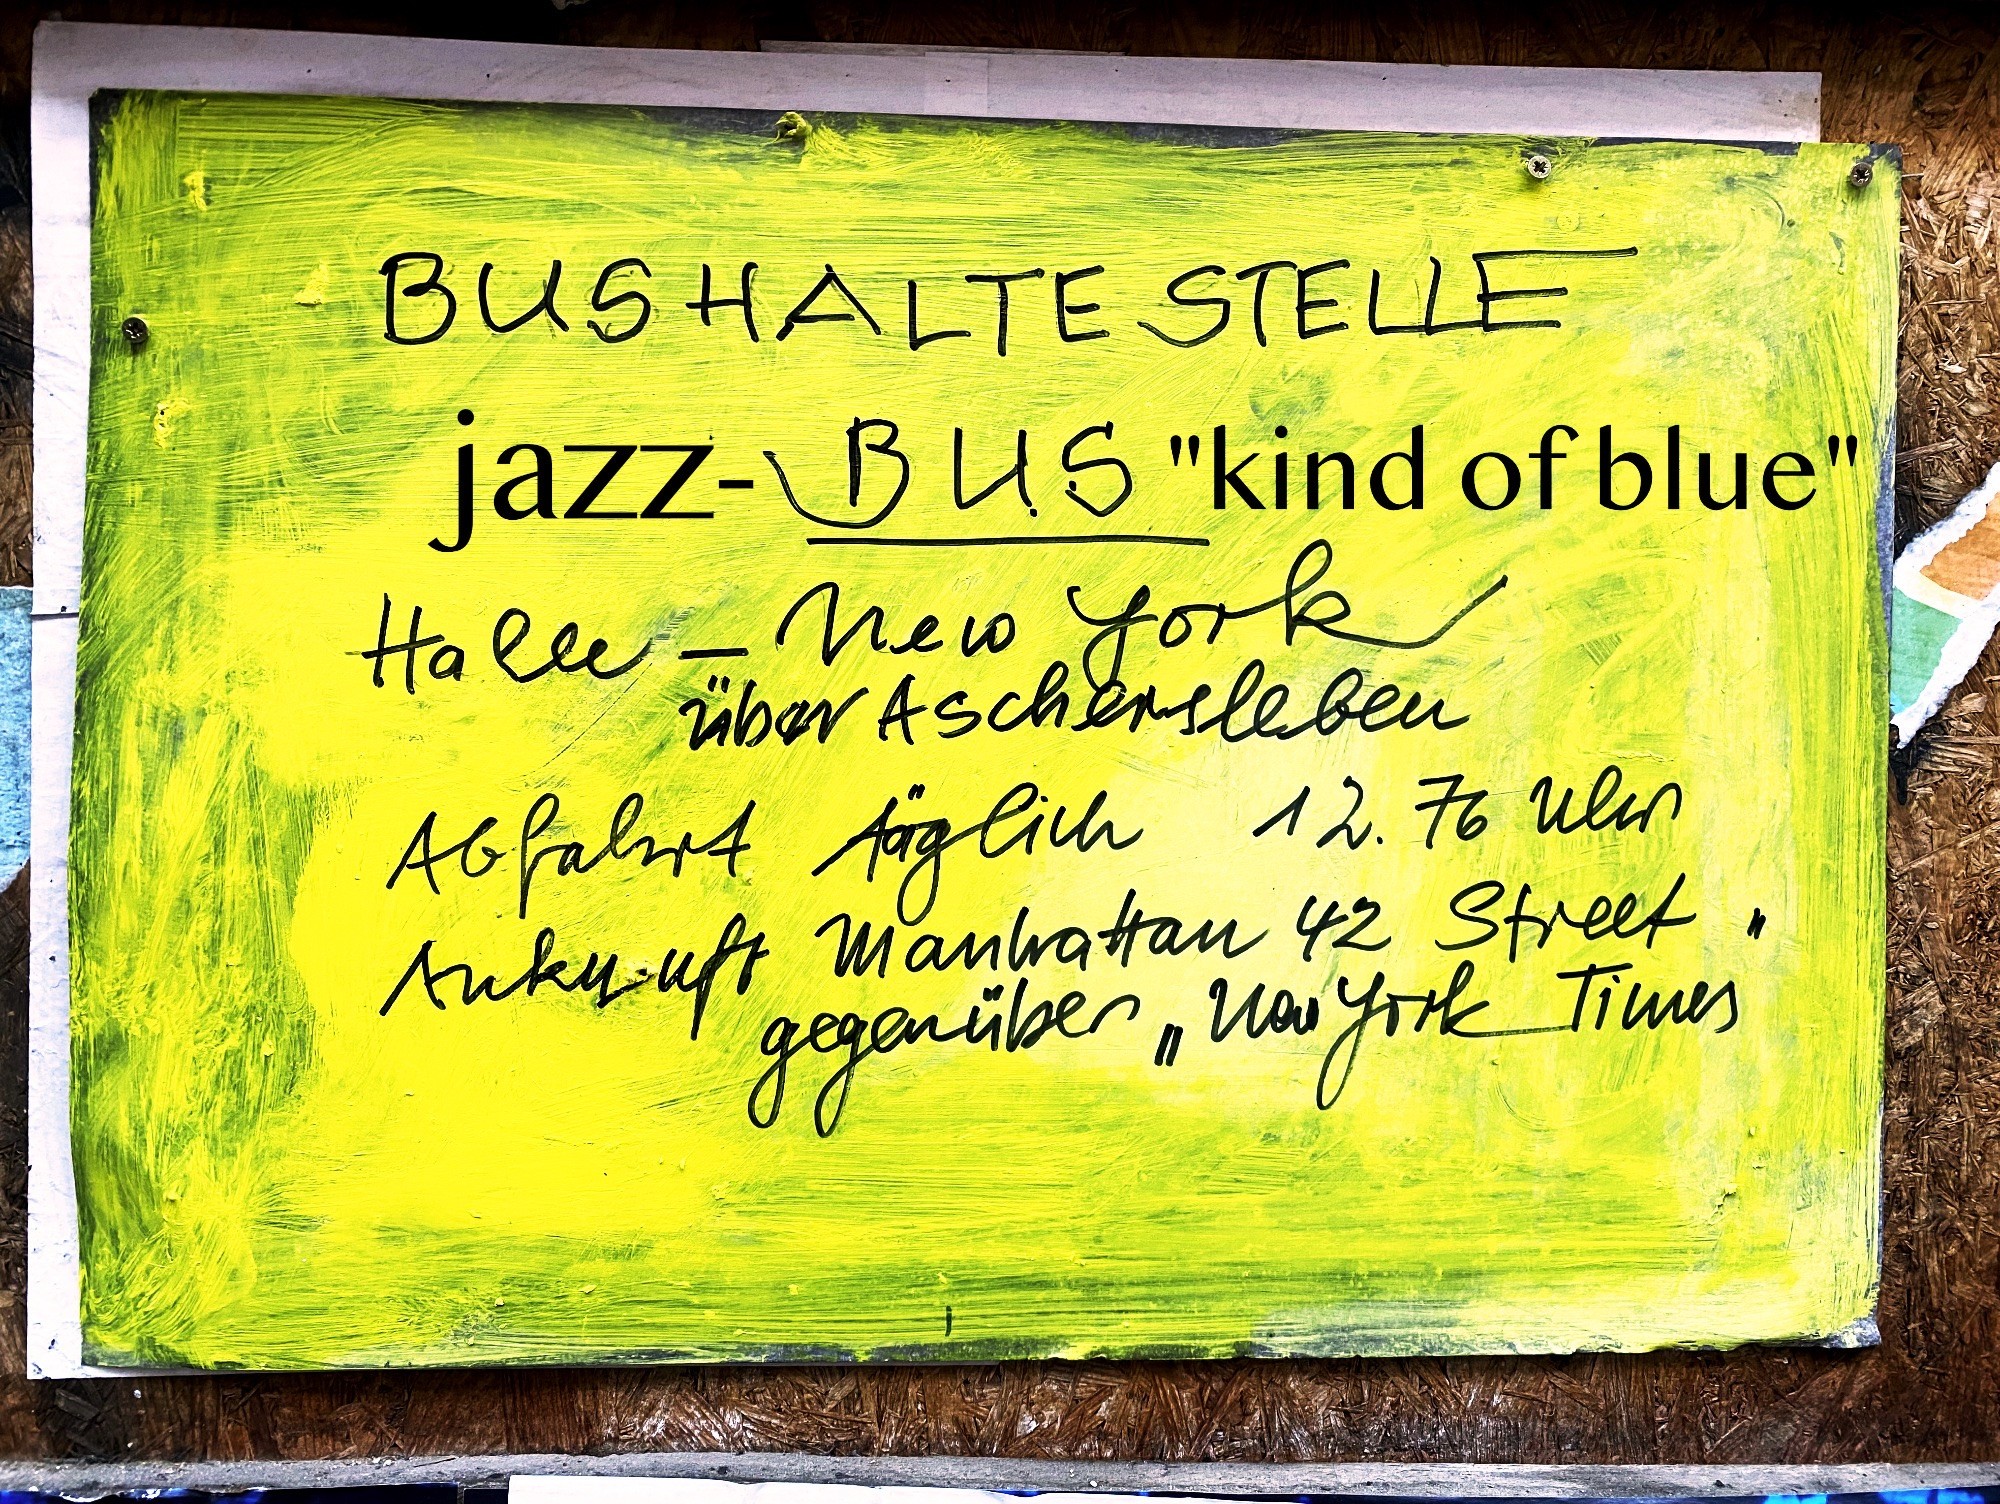 BUSHALTESTELLE
jazz-BUS "kind of blue"
Halle – New York
über Aschersleben
Abfahrt täglich 12.76 Uhr
Ankunft Manhattan 42 Street
gegenüber „New York Times"